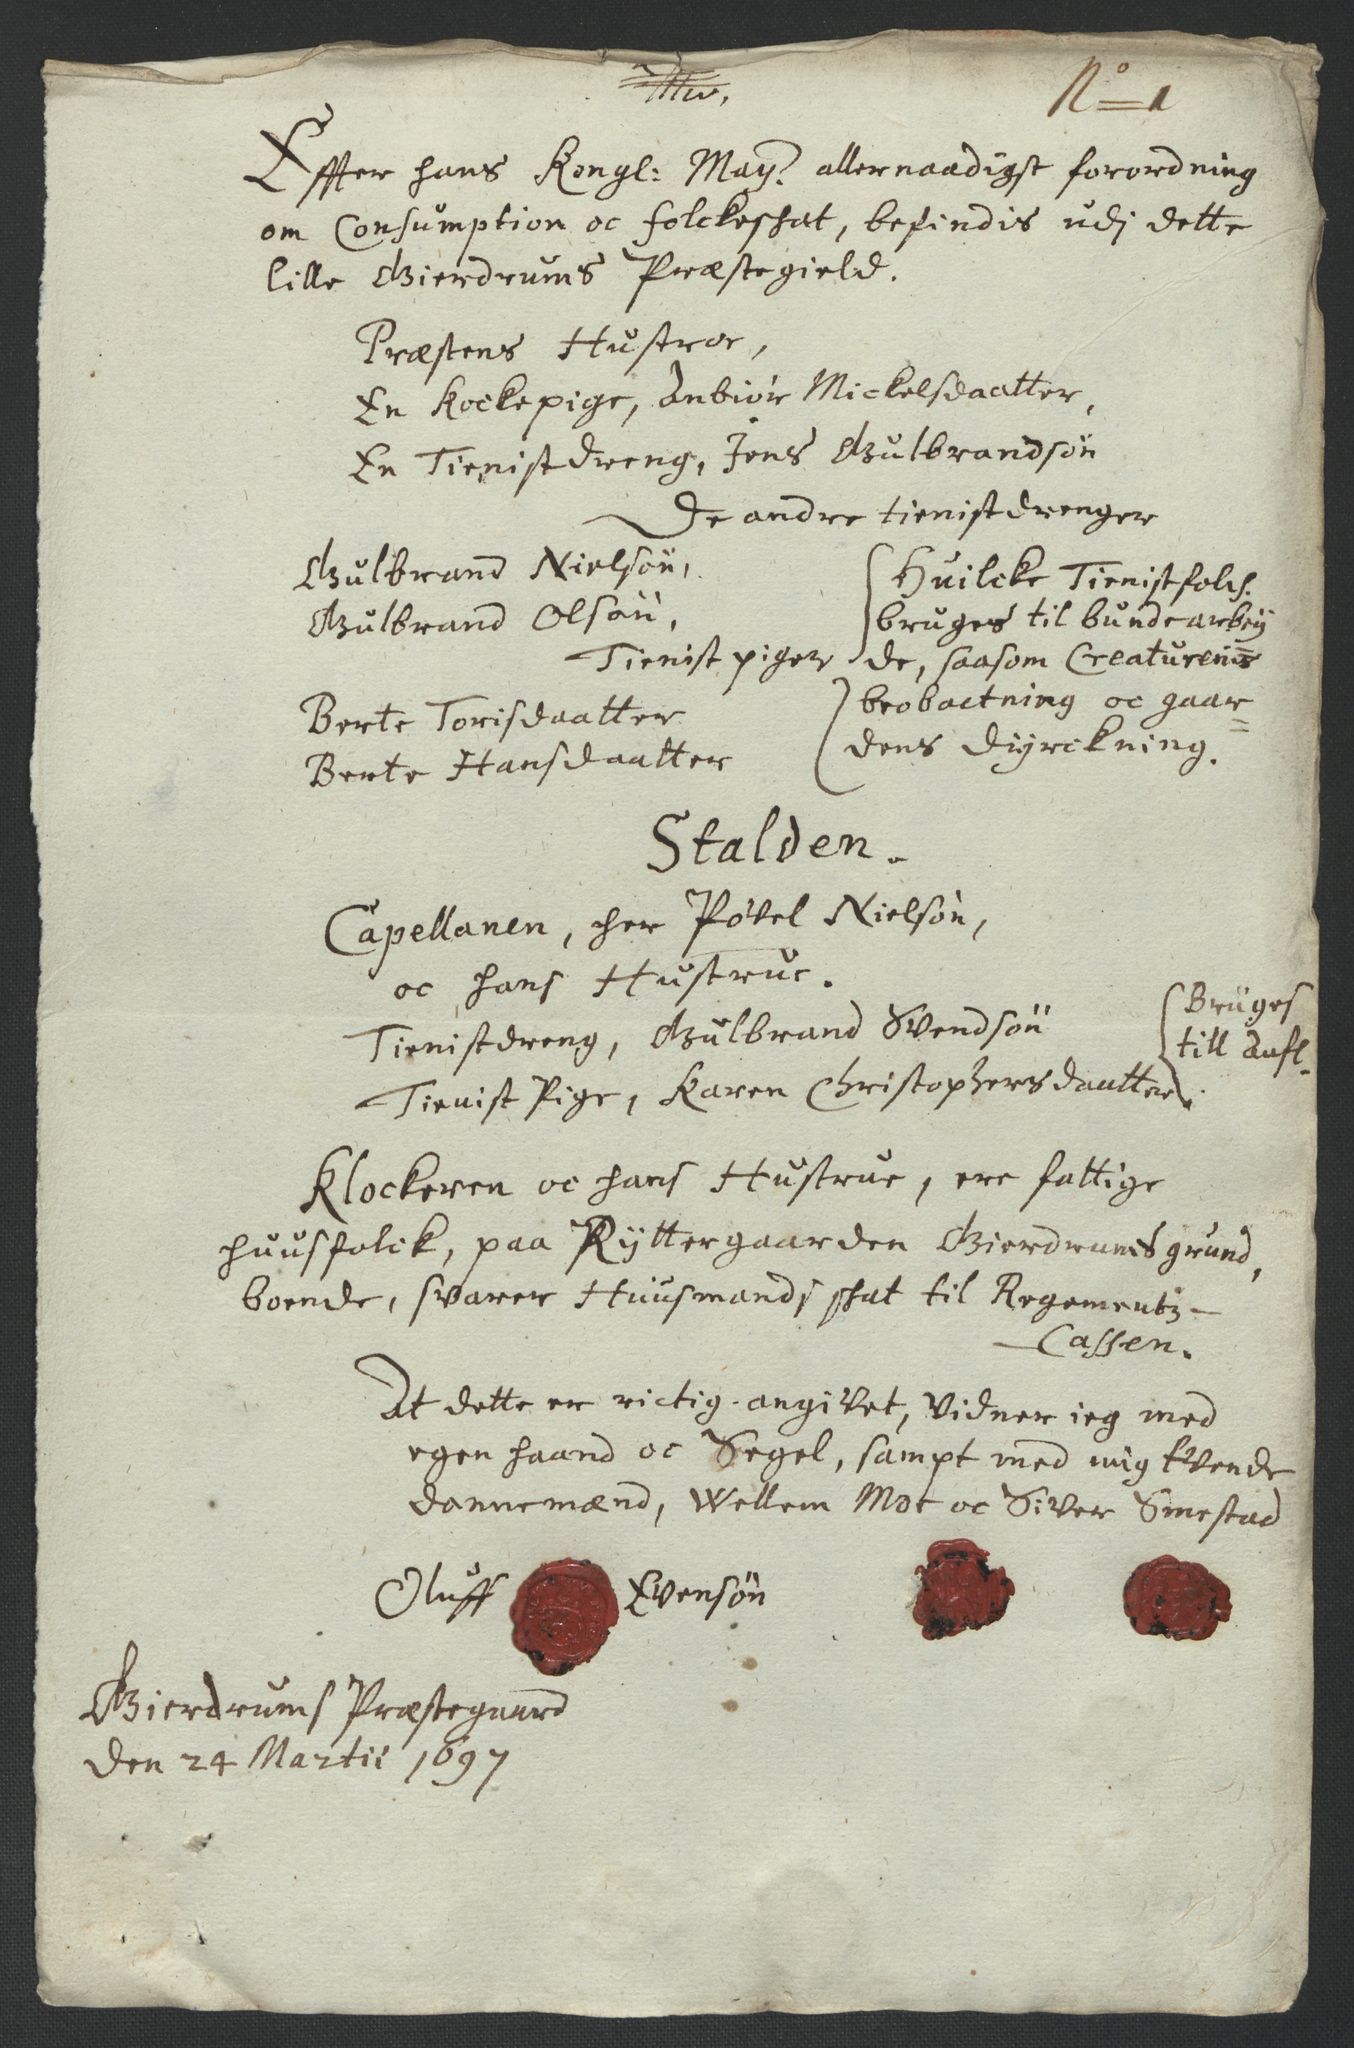 No 1
Effter hans Kongl: May: allernaadigst forordning
om Consumption oc folckeskat, befindis udj dette
lille Gierdrums Præstegield.
Præstens Hustroe,
En Kockepige, Anbiör Mickelsdaatter,
En Tienistdreng, Jens Gulbrandsön
De andre tienistdrenger
Gulbrand Nielsön,
Gulbrand Olsön,
Tienist piger
Berte Torisdaatter
Berte Hansdaatter
Huilcke Tienistfolck
bruges til bundearbey
de, saasom Creaturenis
beobactning oc gaar=
dens diyrckning.
Stalden.
Capellanen, her Povel Nielsön,
oc hans Hustrue.
Tienistdreng, Gulbrand Svendsön
Tienist Pige, Karen Christophersdaatter.
Bruges
till aufl.
Klockeren oc hans Hustrue, ere fattige
huusfolck, paa Ryttergaarden Gierdrums grund,
boende, svarer Huusmands skat til Regementz-
Cassen.
At dette er rictig angivet, vidner ieg med
egen haand oc Segel, sampt med mig tvende
dannemænd, Wellem Moe oc Siver Smestad
Oluff Evensön
Gierdrums Præstegaard
den 24 Martii 1697